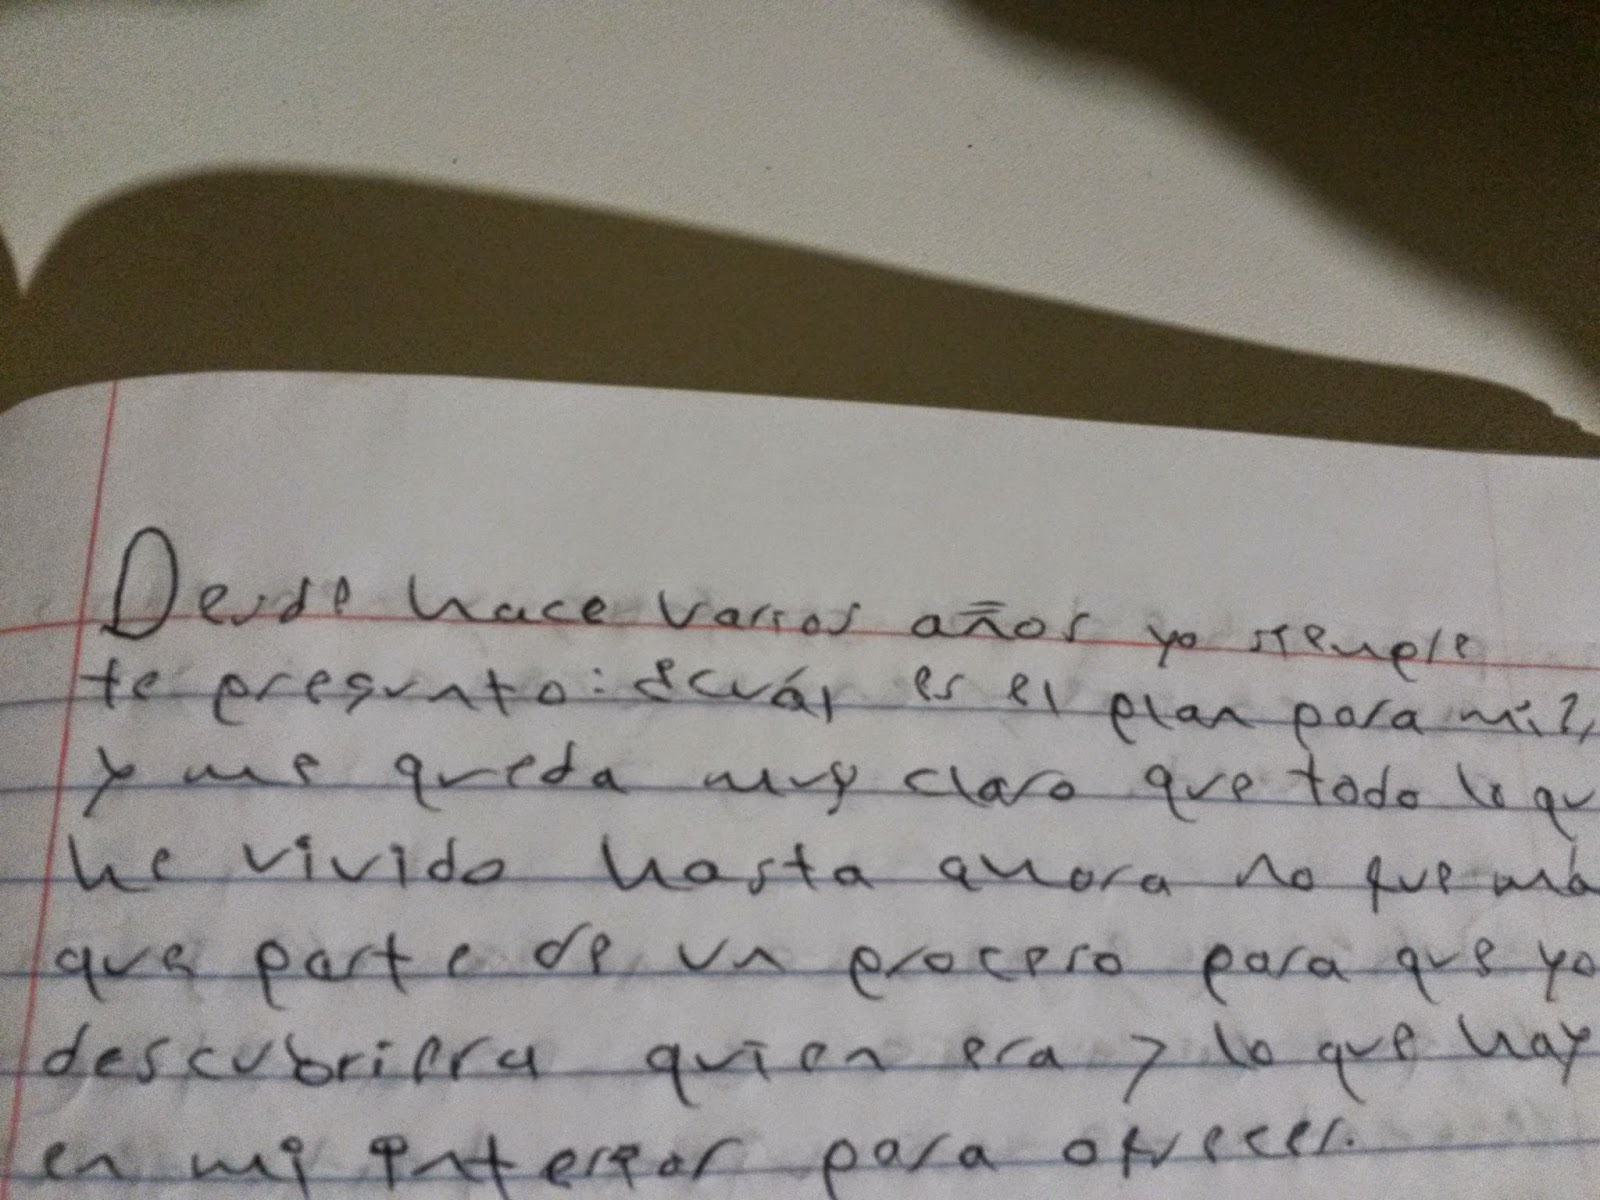 Desde hace varios años yo siempre
te pregunto: ¿cuál es el plan para mi?,
y me queda muy claro que todo lo qu
he vivido hasta ahora no fue má
que parte de un proceso para que yo
descubriera quien era y lo que hay
en mi interior para ofrecer.